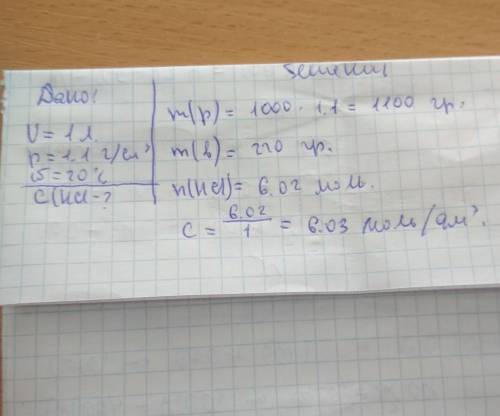 Решение
Дано:
V = 1 л.
p = 1.1 г/см³
ω = 20%
C(HCl - ?
m(p) = 1000 · 1.1 = 1100 гр.
m(в) = 220 гр.
n(HCl) = 6.02 моль.
C = 6.02 / 1 = 6.03 моль/дм³.